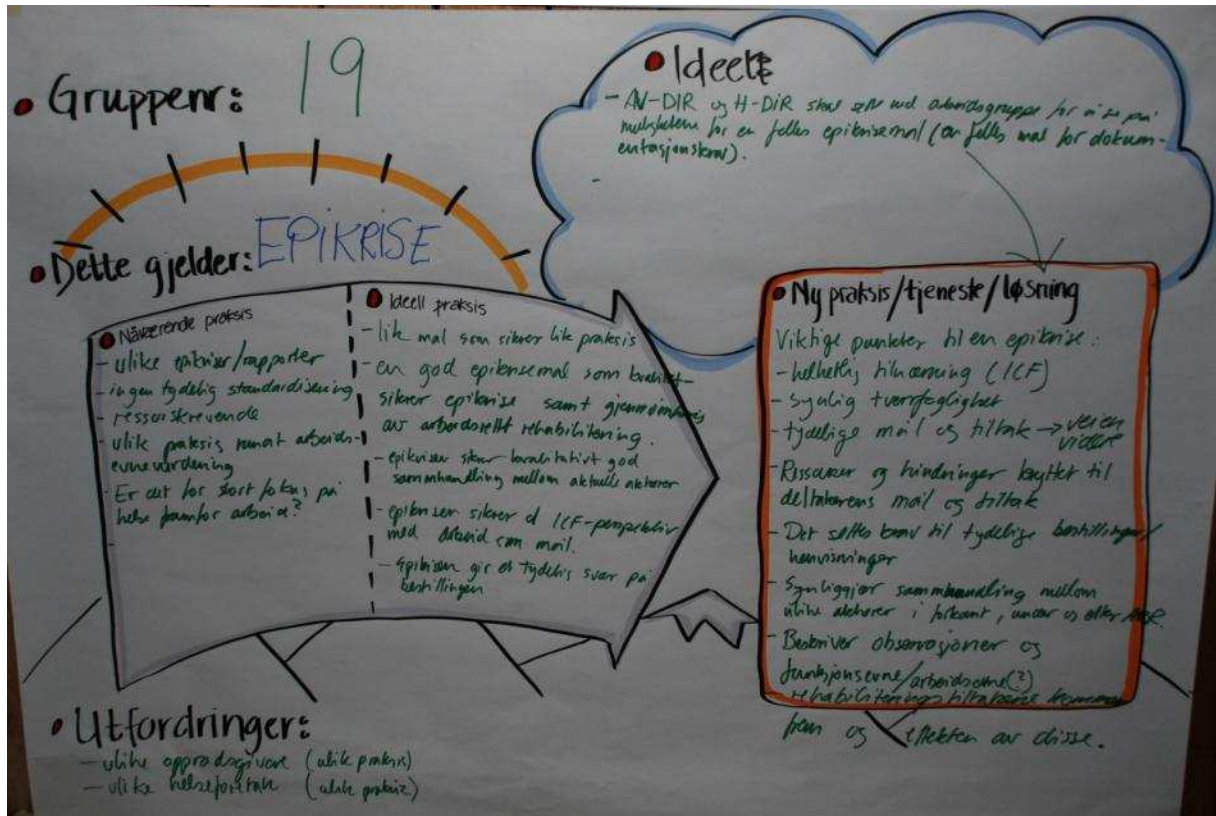 • Gruppenr: 19
• Dette gjelder: EPIKRISE
• Nåværende praksis
- ulike epikriser/rapporter
- ingen tydelig standardisering
- ressurskrevende
- ulik praksis rundt arbeids-
evnevurdering
- Er det for stort fokus på
helse framfor arbeid?
• Ideell praksis
- lik mal som sikrer lik praksis
- en god epikrisemal som kvalitet-
sikrer epikrise samt gjennomføring
av arbeidsrettet rehabilitering.
- epikrisen sikrer kvalitativt god
sammhandling mellom aktuelle aktører
- epikrisen sikrer et ICF-perspektiv
med arbeid som mål.
- Epikrisen gir et tydelig svar på
bestillingen
• Ideer
- AV-DIR og H-DIR skal sette ned arbeidsgruppe for å se på
mulighetene for en felles epikrisemal (en felles mal for dokum-
entasjonskrav).
-
• Ny praksis/tjeneste/løsning
Viktige punkter til en epikrise:
- helhetlig tilnærming (ICF)
- Synlig tverrfaglighet
- tydelige mål og tiltak → veien
videre
- Ressurser og hindringer knyttet til
deltakerens mål og tiltak
- Det settes krav til tydelige bestillinger/
henvisninger
- Synliggjør sammhandling mellom
ulike aktører i forkant, under og etter
- Beskriver observasjoner og
funksjonsevne/arbeidsevne(?)
- rehabiliteringstiltakene kommer
frem og effekten av disse.
• Utfordringer:
- ulike oppdragsgivere (ulik praksis)
- ulike helseforetak (ulik praksis)